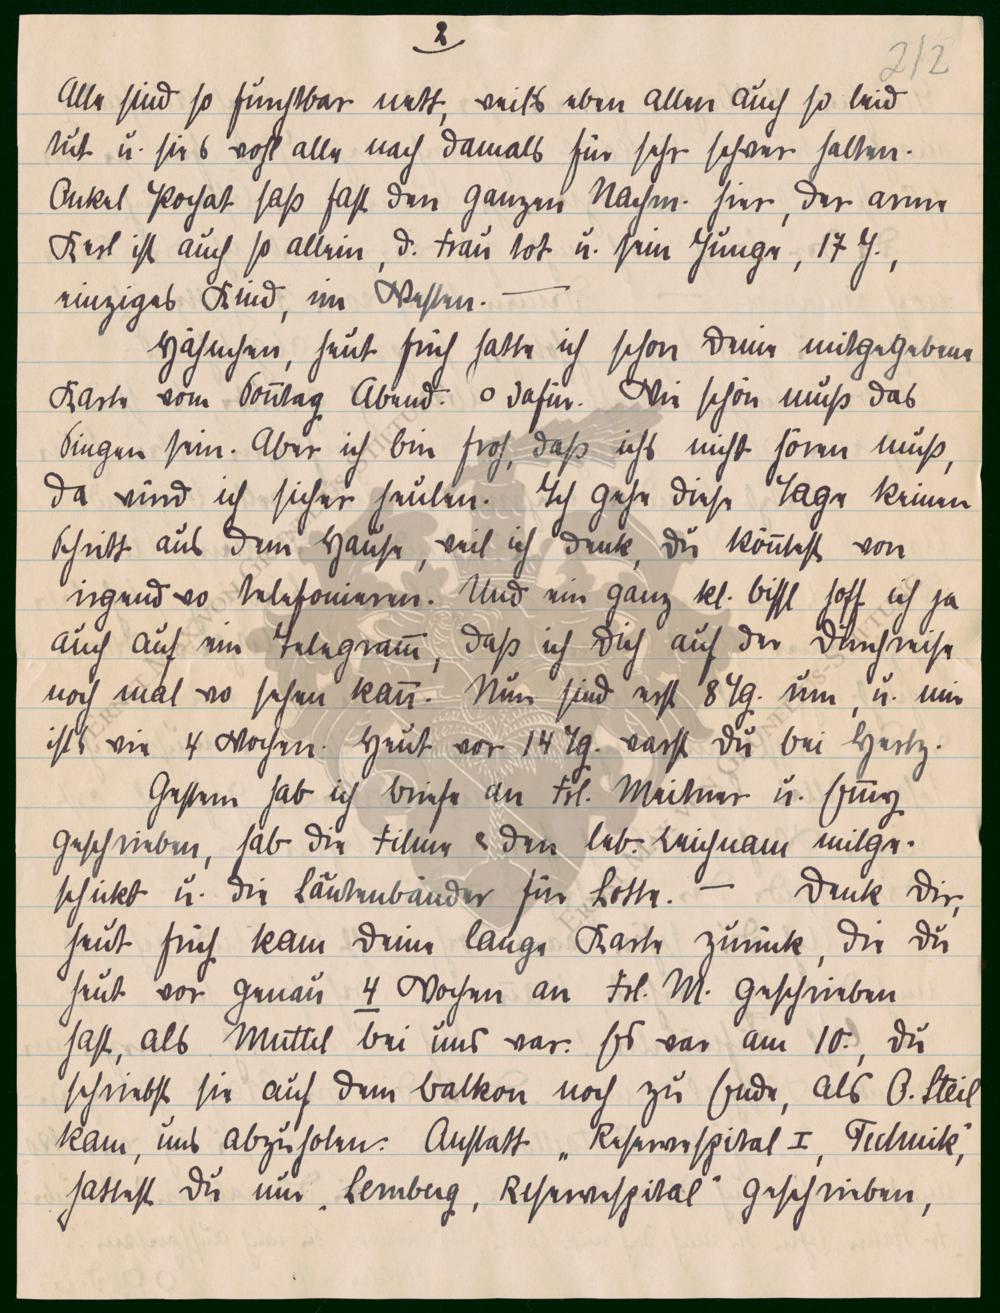 2
212
Alle sind so furchtbar nett, weil's eben allen auch so leid
tut u. sie's wohl alle nach damals für sehr schwer halten.
Onkel Kochat saß fast den ganzen Nachm. hier, der arme
Kerl ist auch so allein, d. Frau tot u. sein Junge, 17 J.,
einziges Kind, im Westen. —
Hähnchen, heut früh hatte ich schon Deine mitgegebene
Karte vom Son̄tag Abend. o dafür. Wie schön muß das
Singen sein. Aber ich bin froh, daß ichs nicht hören muß,
da würd ich sicher heulen. Ich gehe diese Tage keinen
Schritt aus dem Hause, weil ich denk, Du kön̄test von
irgendwo telefonieren. Und ein ganz kl. bissl hoff ich ja
auch auf ein Telegram̄, daß ich Dich auf der Durchreise
noch mal wo sehen kan̄. Nun sind erst 8 Tg. um, u. mir
ists wie 4 Wochen. Heut vor 14 Tg. warst Du bei Hertz.
Gestern hab ich briefe an Frl. Meitner u. Em̄y
geschrieben, hab die Filme & den leb. Leichnam mitge-
schickt u. die Lautenbänder für Lotte. — Denk Dir,
heut früh kam Deine lange Karte zurück, die Du
heut vor genau 4 Wochen an Frl. M. geschrieben
hast, als Muttel bei uns war. Es war am 10., Du
schriebst sie auf dem balkon noch zu Ende, als O. Steil
kam, uns abzuholen. Anstatt „Reservespital I, Technik",
hattest Du nur „Lemberg, Reservespital" geschrieben,